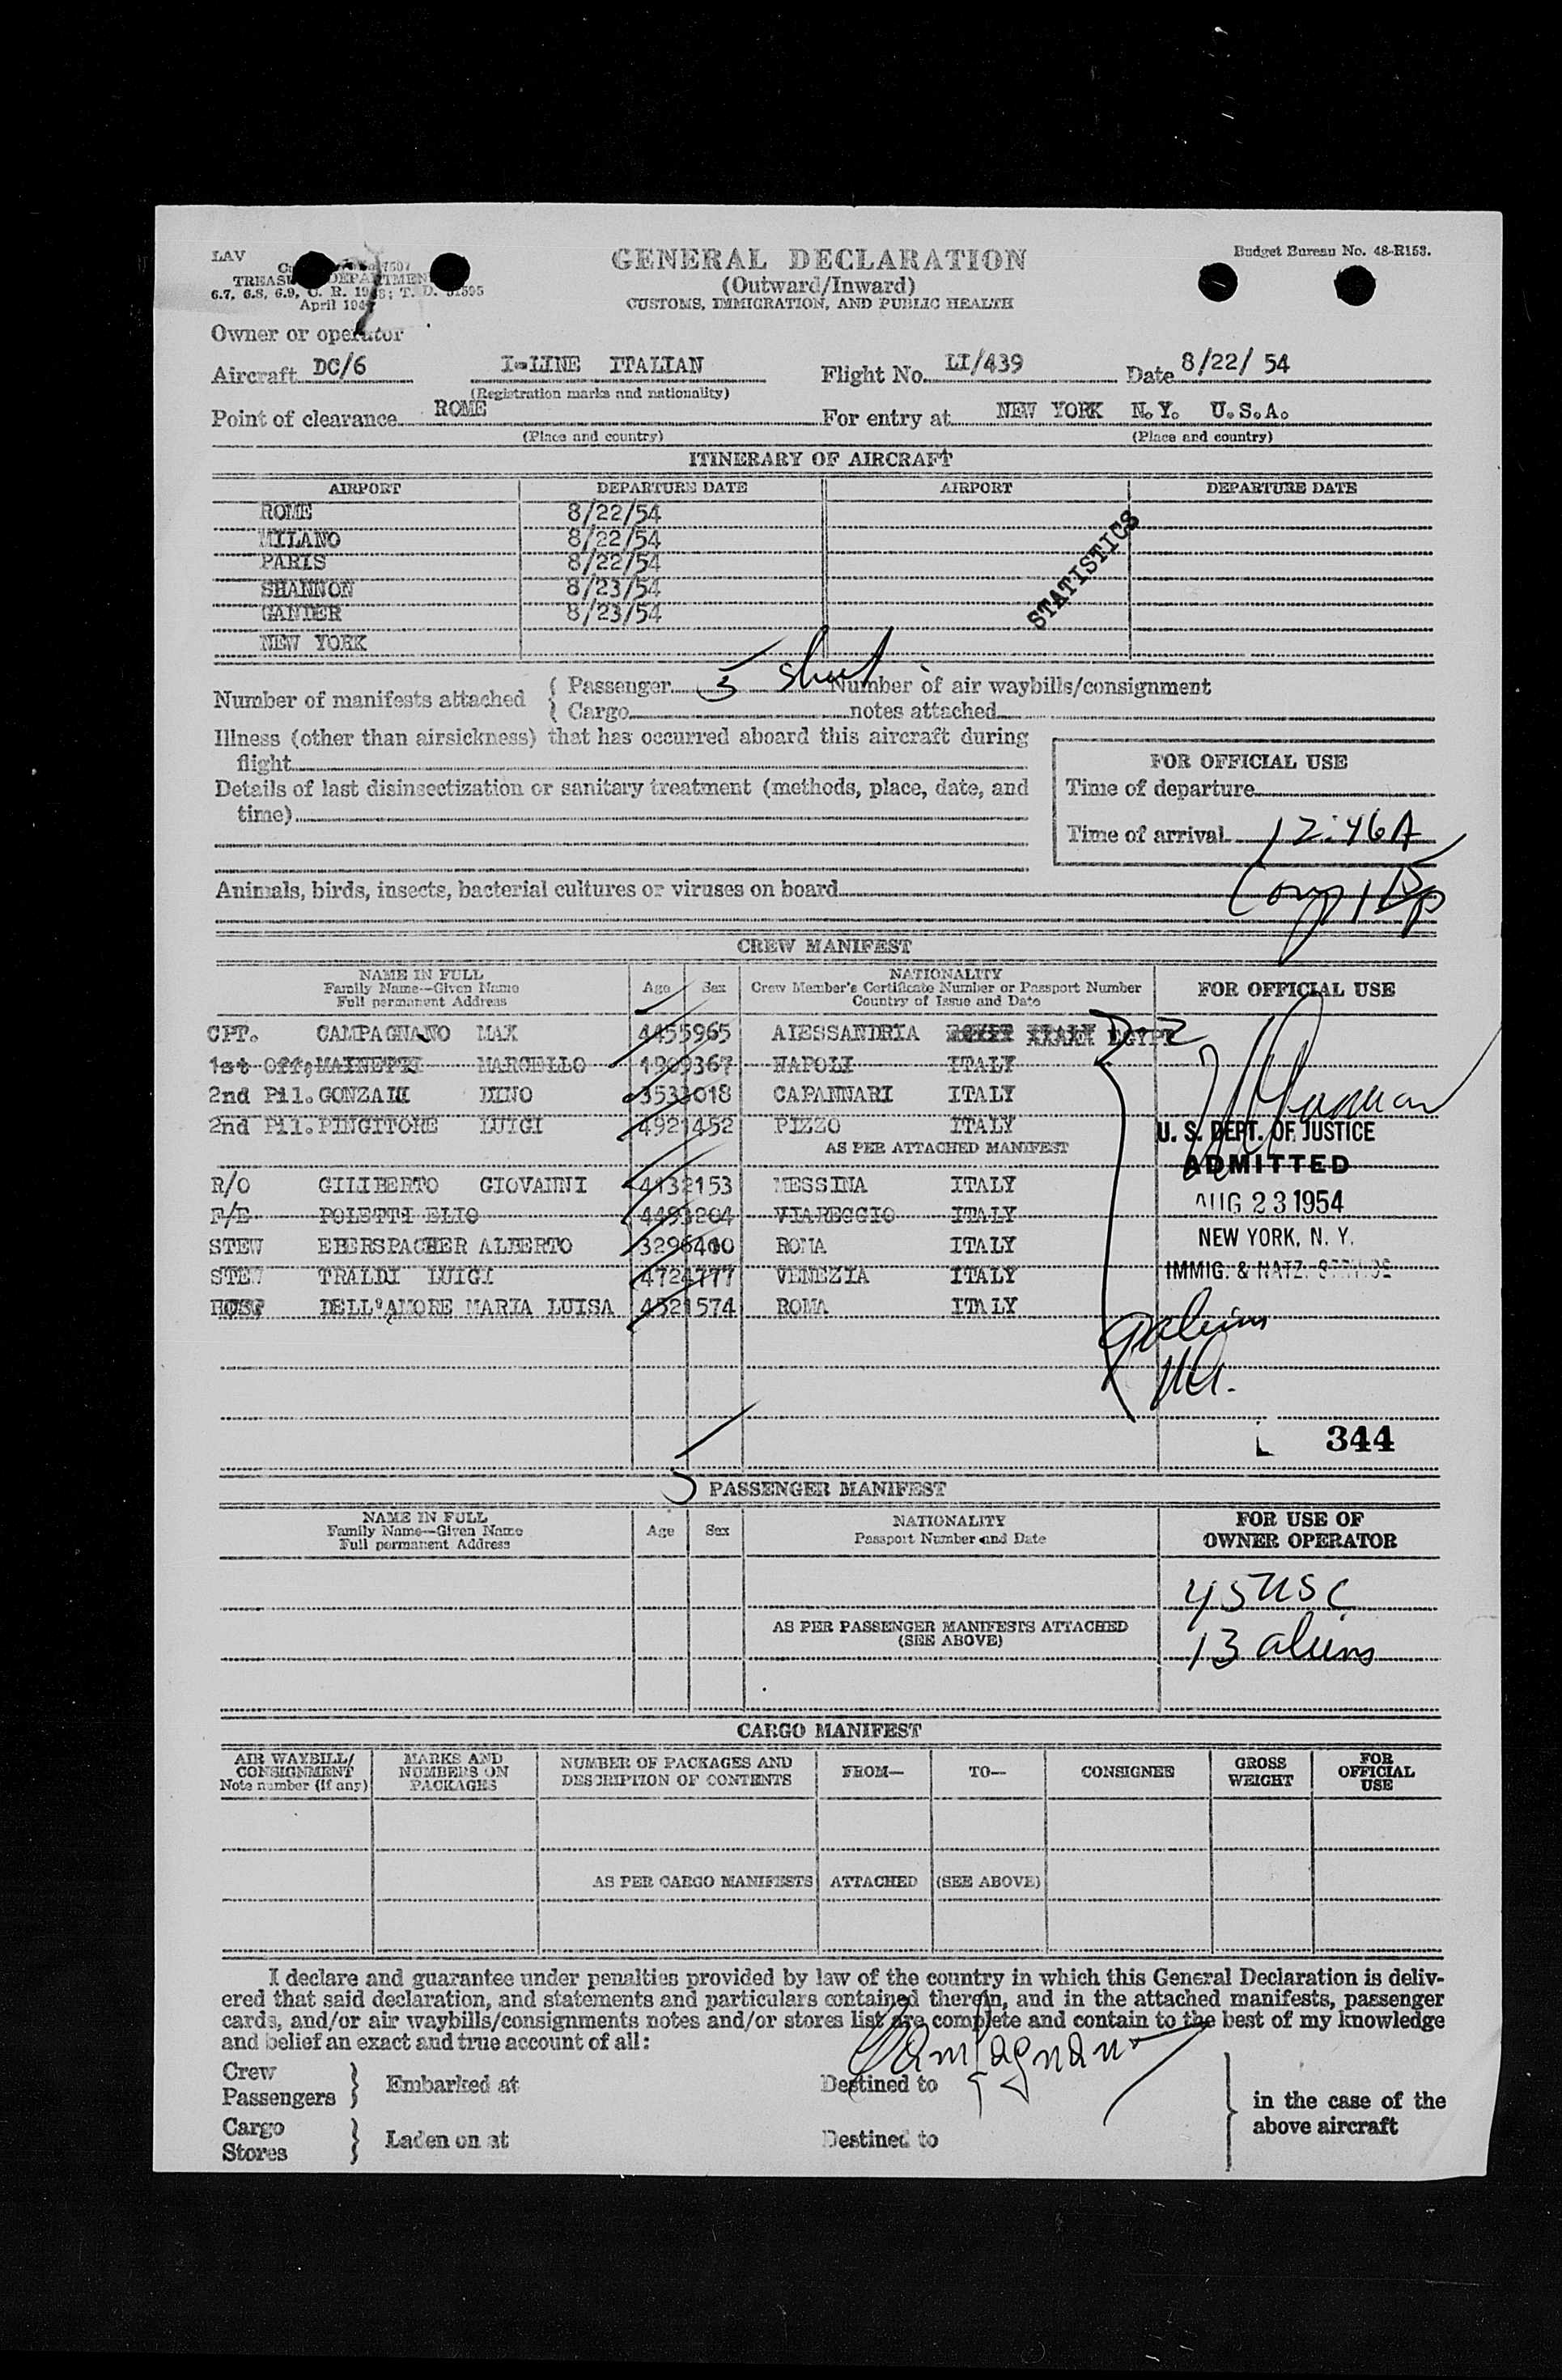 LAV
TREASURY DEPARTMENT
6.7, 6.8, 6.9, C. R. T. D.
April
GENERAL DECLARATION
(Outward/Inward)
CUSTOMS, IMMIGRATION, AND PUBLIC HEALTH
Budget Bureau No. 48-R153.
Owner or operator
Aircraft DC/6 I-LINE ITALIAN Flight No. LI/439 Date 8/22/ 54
(Registration marks and nationality)
Point of clearance ROME For entry at NEW YORK N.Y. U.S.A.
(Place and country) (Place and country)
ITINERARY OF AIRCRAFT
AIRPORT DEPARTURE DATE AIRPORT DEPARTURE DATE
ROME 8/22/54
MILANO 8/22/54
PARIS 8/22/54
SHANNON 8/23/54
GANDER 8/23/54
NEW YORK
STATISTICS
Number of manifests attached { Passenger 5 Number of air waybills/consignment
Cargo notes attached
Illness (other than airsickness) that has occurred aboard this aircraft during
flight
Details of last disinsectization or sanitary treatment (methods, place, date, and
time)
FOR OFFICIAL USE
Time of departure
Time of arrival 12:46A
Animals, birds, insects, bacterial cultures or viruses on board
CREW MANIFEST
NAME IN FULL
Family Name—Given Name
Full permanent Address
Age Sex
NATIONALITY
Crew Member's Certificate Number or Passport Number
Country of Issue and Date
FOR OFFICIAL USE
CPT. CAMPAGNANO MAX 4455965 ALESSANDRIA EGYPT
1st Off; MAINETTI MARCELLO 1909367 NAPOLI ITALY
2nd Pil. GONZALI DINO 3533018 CAPANNARI ITALY
2nd Pil. PINGITORE LUIGI 4921452 PIZZO ITALY
AS PER ATTACHED MANIFEST
R/O GILIBERTO GIOVANNI 4132153 MESSINA ITALY
F/E POLETTI ELIO 4493204 VIAREGGIO ITALY
STEW EBERSPACHER ALBERTO 3296400 ROMA ITALY
STEW TRALDI LUIGI 4724777 VENEZIA ITALY
HOST DELL'AMORE MARIA LUISA 4521574 ROMA ITALY
U. S. DEPT. OF JUSTICE
ADMITTED
AUG 23 1954
NEW YORK, N. Y.
IMMIG. & NATZ. SERVICE
344
5
PASSENGER MANIFEST
NAME IN FULL
Family Name—Given Name
Full permanent Address
Age Sex
NATIONALITY
Passport Number and Date
FOR USE OF
OWNER OPERATOR
45 USC
AS PER PASSENGER MANIFESTS ATTACHED
(SEE ABOVE)
13 aliens
CARGO MANIFEST
AIR WAYBILL/
CONSIGNMENT
Note number (if any)
MARKS AND
NUMBERS ON
PACKAGES
NUMBER OF PACKAGES AND
DESCRIPTION OF CONTENTS
FROM—
TO—
CONSIGNEE
GROSS
WEIGHT
FOR
OFFICIAL
USE
AS PER CARGO MANIFESTS ATTACHED (SEE ABOVE)
I declare and guarantee under penalties provided by law of the country in which this General Declaration is deliv-
ered that said declaration, and statements and particulars contained therein, and in the attached manifests, passenger
cards, and/or air waybills/consignments notes and/or stores list are complete and contain to the best of my knowledge
and belief an exact and true account of all:
Campagnano
Crew
Passengers } Embarked at Destined to
Cargo
Stores } Laden on at Destined to
in the case of the
above aircraft